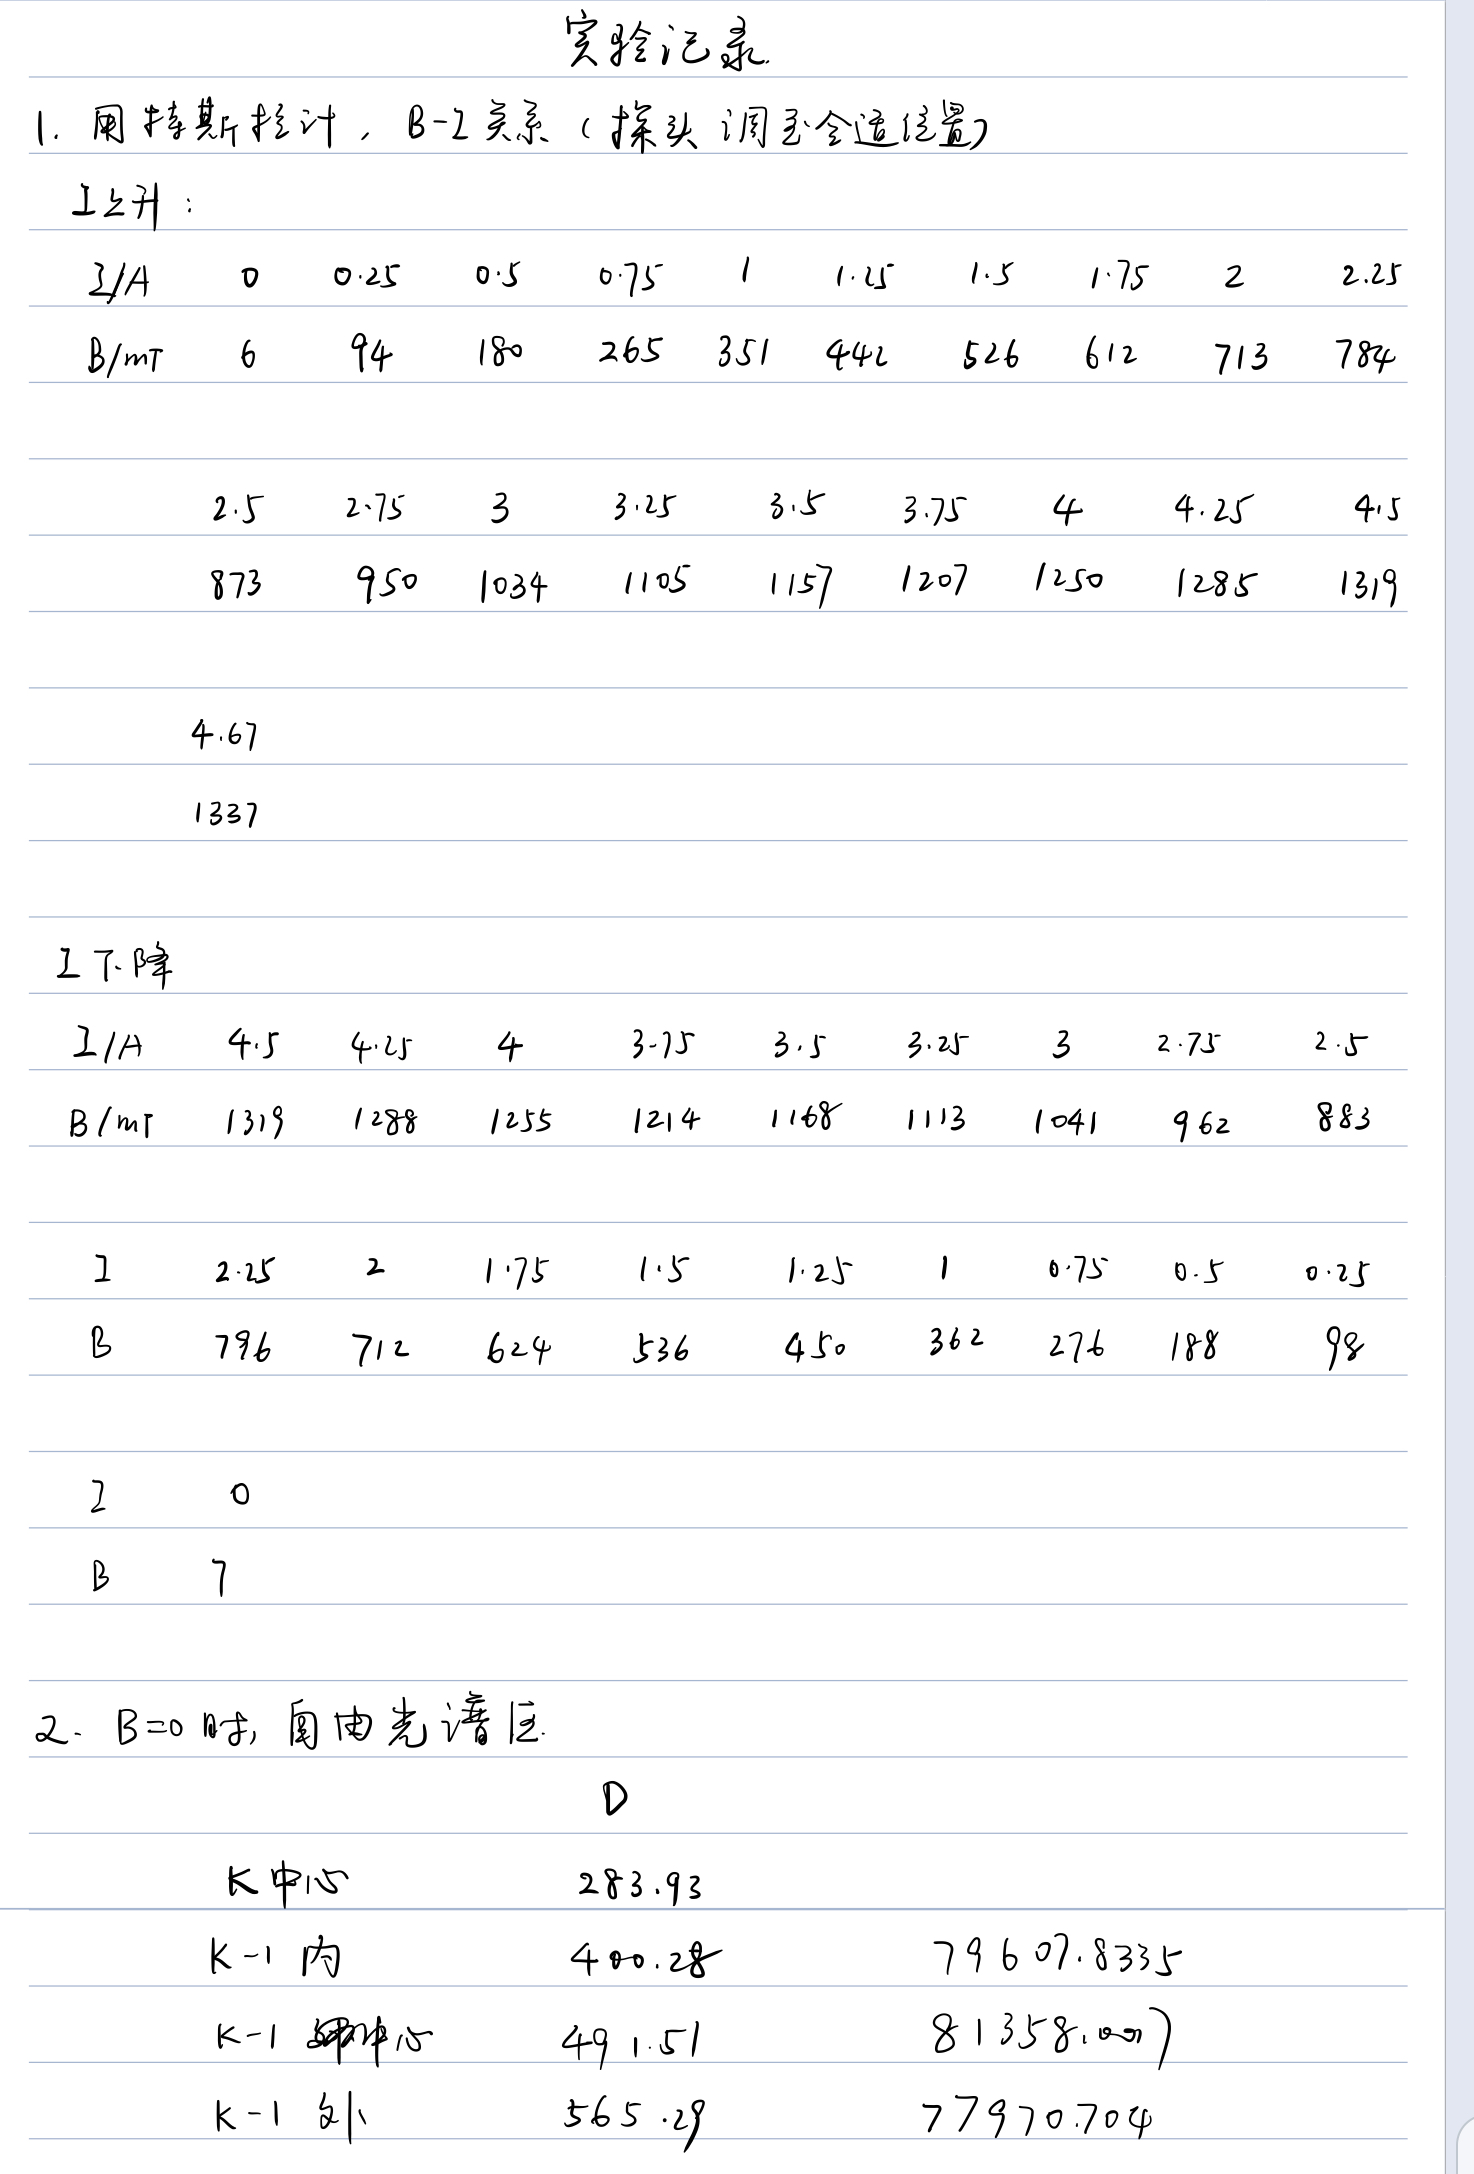 实验记录
1. 用特斯拉计, B-I关系 (探头调至合适位置)
I上升:
I/A 0 0.25 0.5 0.75 1 1.25 1.5 1.75 2 2.25
B/mT 6 94 180 265 351 442 526 612 713 784
2.5 2.75 3 3.25 3.5 3.75 4 4.25 4.5
873 950 1034 1105 1157 1207 1250 1285 1319
4.67
1337
I下降
I/A 4.5 4.25 4 3.75 3.5 3.25 3 2.75 2.5
B/mT 1319 1288 1255 1214 1168 1113 1041 962 883
I 2.25 2 1.75 1.5 1.25 1 0.75 0.5 0.25
B 796 712 624 536 450 362 276 188 98
I 0
B 7
2. B=0时, 自由光谱区.
D
K中心 283.93
K-1 内 400.28 79607.8335
K-1 中心 491.51 81358.0017
K-1 外 565.29 77970.704